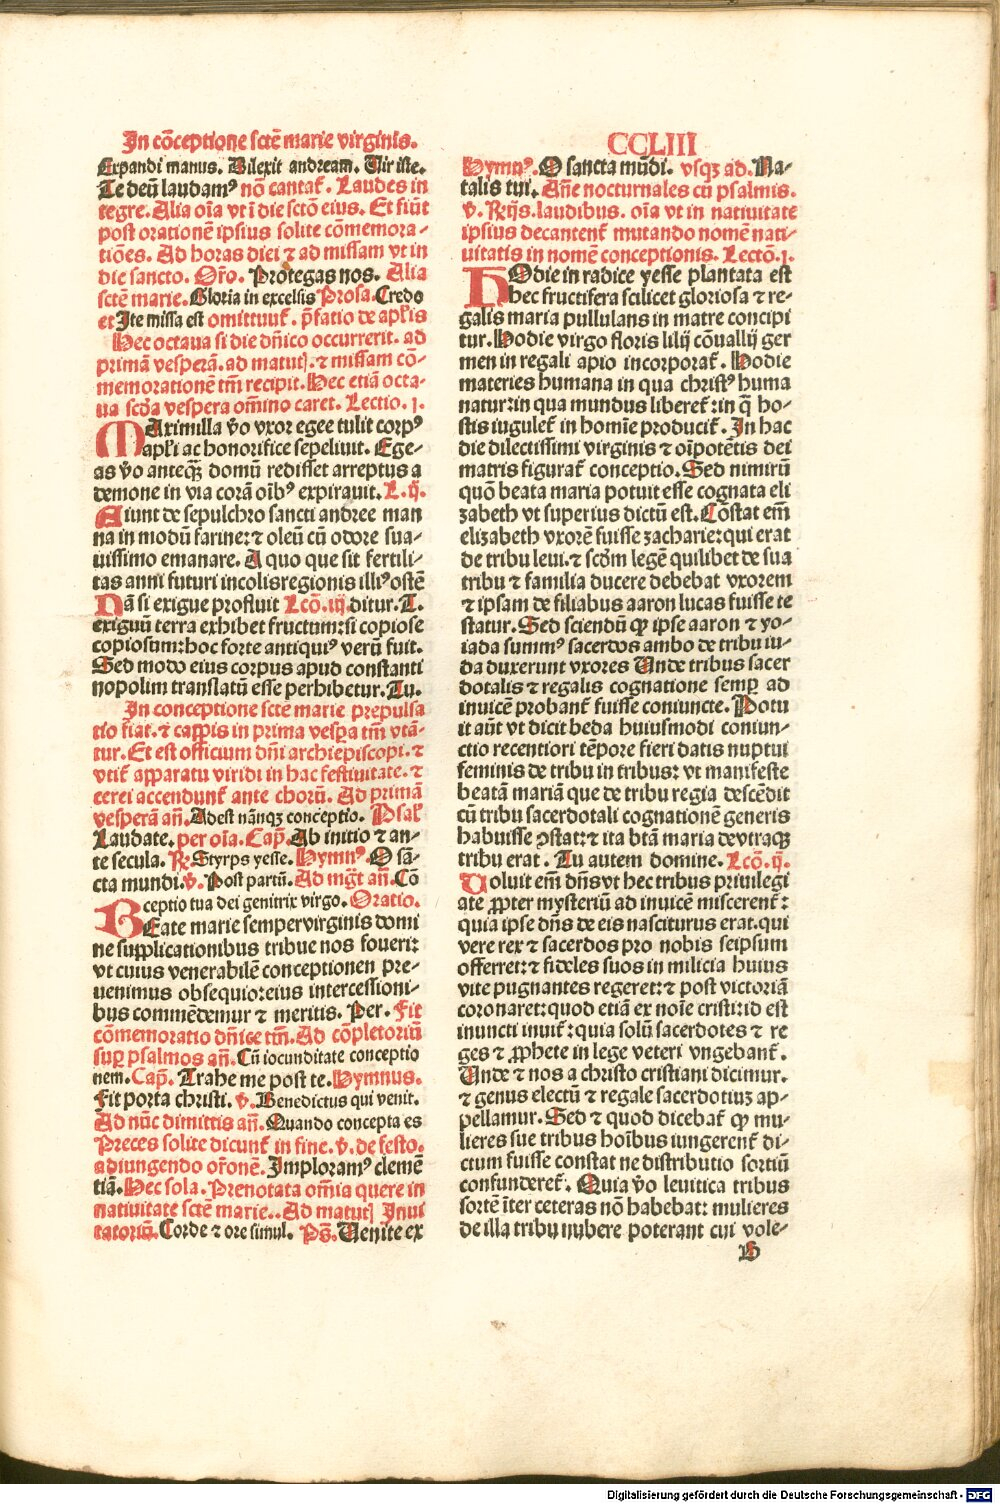 In cōceptione sctē marie virginis.
Expandi manus. Dilexit andream. Vir iste.
Te deū laudamꝰ nō cantat᷑. Laudes in
tegre. Alia oīa vt ī die sctō eius. Et fiūt
post orationē ipsius solite cōmemora-
tiōes. Ad horas diei ⁊ ad missam vt in
die sancto. Or̄o. Protegas nos. Alia
sctē marie. Gloria in excelsis Prosa. Credo
et Ite missa est omittuut᷑. p̄fatio de apl̄is
Hec octaua si die dn̄ico occurrerit. ad
primā vesperā. ad matuꝭ. ⁊ missam cō-
memorationē tm̄ recipit. Hec etiā octa-
ua scd̄a vespera om̄ino caret. Lectio. ꝭ.
MAximilla v̄o vxor egee tulit corpꝰ
apl̄i ac honorifice sepeliuit. Ege-
as v̄o anteqꝫ̄ domū redisset arreptus a
demone in via corā oīb⁹ expirauit. L. ij.
Aiunt de sepulchro sancti andree man
na in modū farine: ⁊ oleū cū odore sua-
uissimo emanare. A quo que sit fertili-
tas anni futuri incolis regionis illiꝰ ostē
Nā si exigue profluit Lcō. iij. ditur. T.
exiguū terra exhibet fructum: si copiose
copiosum: hoc forte antiquiꝰ verū fuit.
Sed modo eius corpus apud constanti
nopolim translatū esse perhibetur. Tu.
In conceptione sctē marie prepulsa
tio fiat. ⁊ cappis in prima vespa tm̄ vtā-
tur. Et est officium dn̄i archiepiscopi. ⁊
vtit᷑ apparatu viridi in hac festiuitate. ⁊
cerei accendunt᷑ ante chorū. Ad primā
vesperā an̄. Adest nāqꝫ conceptio. Psal᷑
Laudate. per oīa. Cap̄. Ab initio ⁊ an-
te secula. ℟. Styrps yesse. Hymnꝰ. O sā-
cta mundi. v̄. Post partū. Ad mḡt an̄. Cō
ceptio tua dei genitrix virgo. Oratio.
BEate marie sempervirginis domi
ne supplicationibus tribue nos foueri:
vt cuius venerabilē conceptionen pre-
uenimus obsequio: eius intercessioni-
bus commēdemur ⁊ meritis. Per. Fit
cōmemoratio dn̄ice tm̄. Ad cōpletoriū
sup psalmos an̄. Cū iocunditate conceptio
nem. Cap̄. Trahe me post te. Hymnus.
Fit porta christi. v̄. Benedictus qui venit.
Ad nūc dimittis an̄. Quando concepta es
Preces solite dicunt᷑ in fine. v̄. de festo.
adiungendo or̄onē. Imploramꝰ clemē
tiā. Hec sola. Prenotata om̄ia quere in
natiuitate sctē marie.. Ad matuꝭ Inui
tatoriū. Corde ⁊ ore simul. Ps̄. Venite ex
CCLIII
Hymnꝰ. O sancta mūdi. vsqꝫ ad. Na-
talis tui. An̄e nocturnales cū psalmis.
v̄. Rn̄s. laudibus. oīa vt in natiuitate
ipsius decantent᷑ mutando nomē nati-
uitatis in nomē conceptionis. Lectō. ꝭ.
HOdie in radice yesse plantata est
hec fructifera scilicet gloriosa ⁊ re-
galis maria pullulans in matre concipi
tur. Hodie virgo floris lilij cōuallij ger
men in regali apio incorporat᷑. Hodie
materies humana in qua christꝰ huma
natur: in qua mundus liberet᷑: in q̄ ho-
stis iugulet᷑ in homīe producit᷑. In hac
die dilectissimi virginis ⁊ oīpotētis dei
matris figurat᷑ conceptio. Sed nimirū
quō beata maria potuit esse cognata eli
zabeth vt superius dictū est. Cōstat em̄
elizabeth vxorē fuisse zacharie: qui erat
de tribu leui. ⁊ scd̄m legē quilibet de sua
tribu ⁊ familia ducere debebat vxorem
⁊ ipsam de filiabus aaron lucas fuisse te
statur. Sed sciendū ꝙ ipse aaron ⁊ yo-
iada summꝰ sacerdos ambo de tribu iu-
da duxerunt vxores Unde tribus sacer
dotalis ⁊ regalis cognatione semp ad
inuicē probant᷑ fuisse coniuncte. Potu
it aūt vt dicit beda huiusmodi coniun-
ctio recentiori tēpore fieri datis nuptui
feminis de tribu in tribus: vt manifeste
beatā mariā que de tribu regia descēdit
cū tribu sacerdotali cognationē generis
habuisse ꝯstat: ⁊ ita btā maria de vtraqꝫ
tribu erat. Tu autem domine. Lcō. ij.
Voluit em̄ dn̄s vt hec tribus priuilegi
ate ꝓpter mysteriū ad inuicē miscerent᷑:
quia ipse dn̄s de eis nasciturus erat. qui
vere rex ⁊ sacerdos pro nobis seipsum
offerret: ⁊ fideles suos in milicia huius
vite pugnantes regeret: ⁊ post victoriā
coronaret: quod etiā ex noīe cristi: id est
inuncti inuit᷑: quia solū sacerdotes ⁊ re
ges ⁊ ꝓphete in lege veteri vngebant᷑.
Unde ⁊ nos a christo cristiani dicimur.
⁊ genus electū ⁊ regale sacerdotiuꝫ ap-
pellamur. Sed ⁊ quod dicebat᷑ ꝙ mu-
lieres sue tribus hoībus iungerent᷑ di-
ctum fuisse constat ne distributio sortiū
confunderet᷑. Quia v̄o leuitica tribus
sortē īter ceteras nō habebat: mulieres
de illa tribu nubere poterant cui vole-
B
Digitalisierung gefördert durch die Deutsche Forschungsgemeinschaft - DFG